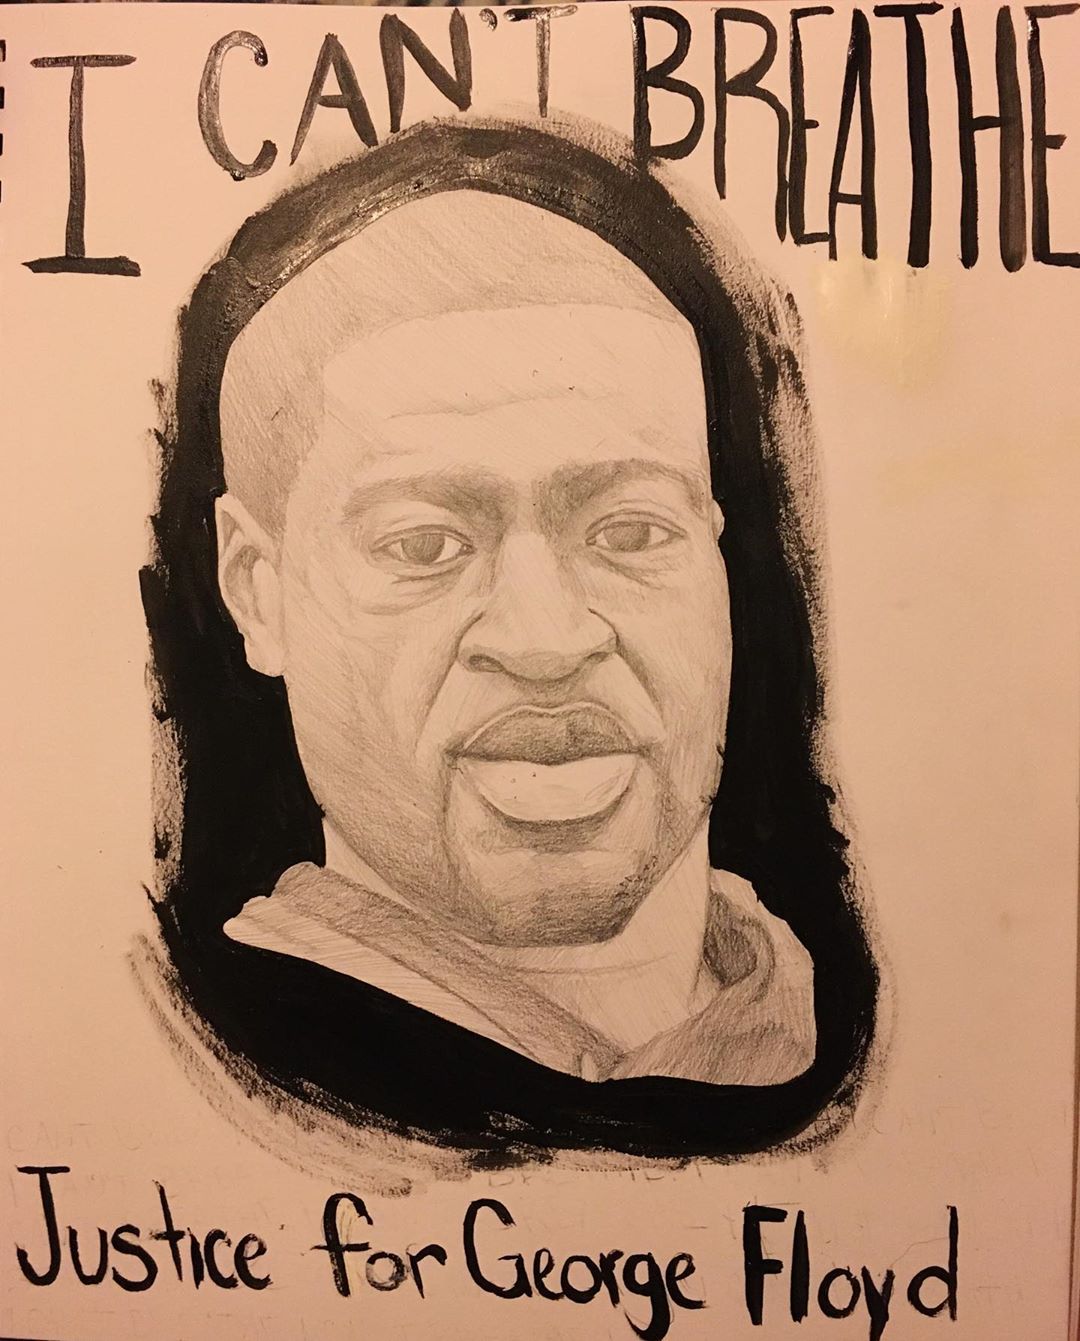 I CAN'T BREATHE
Justice for George Floyd